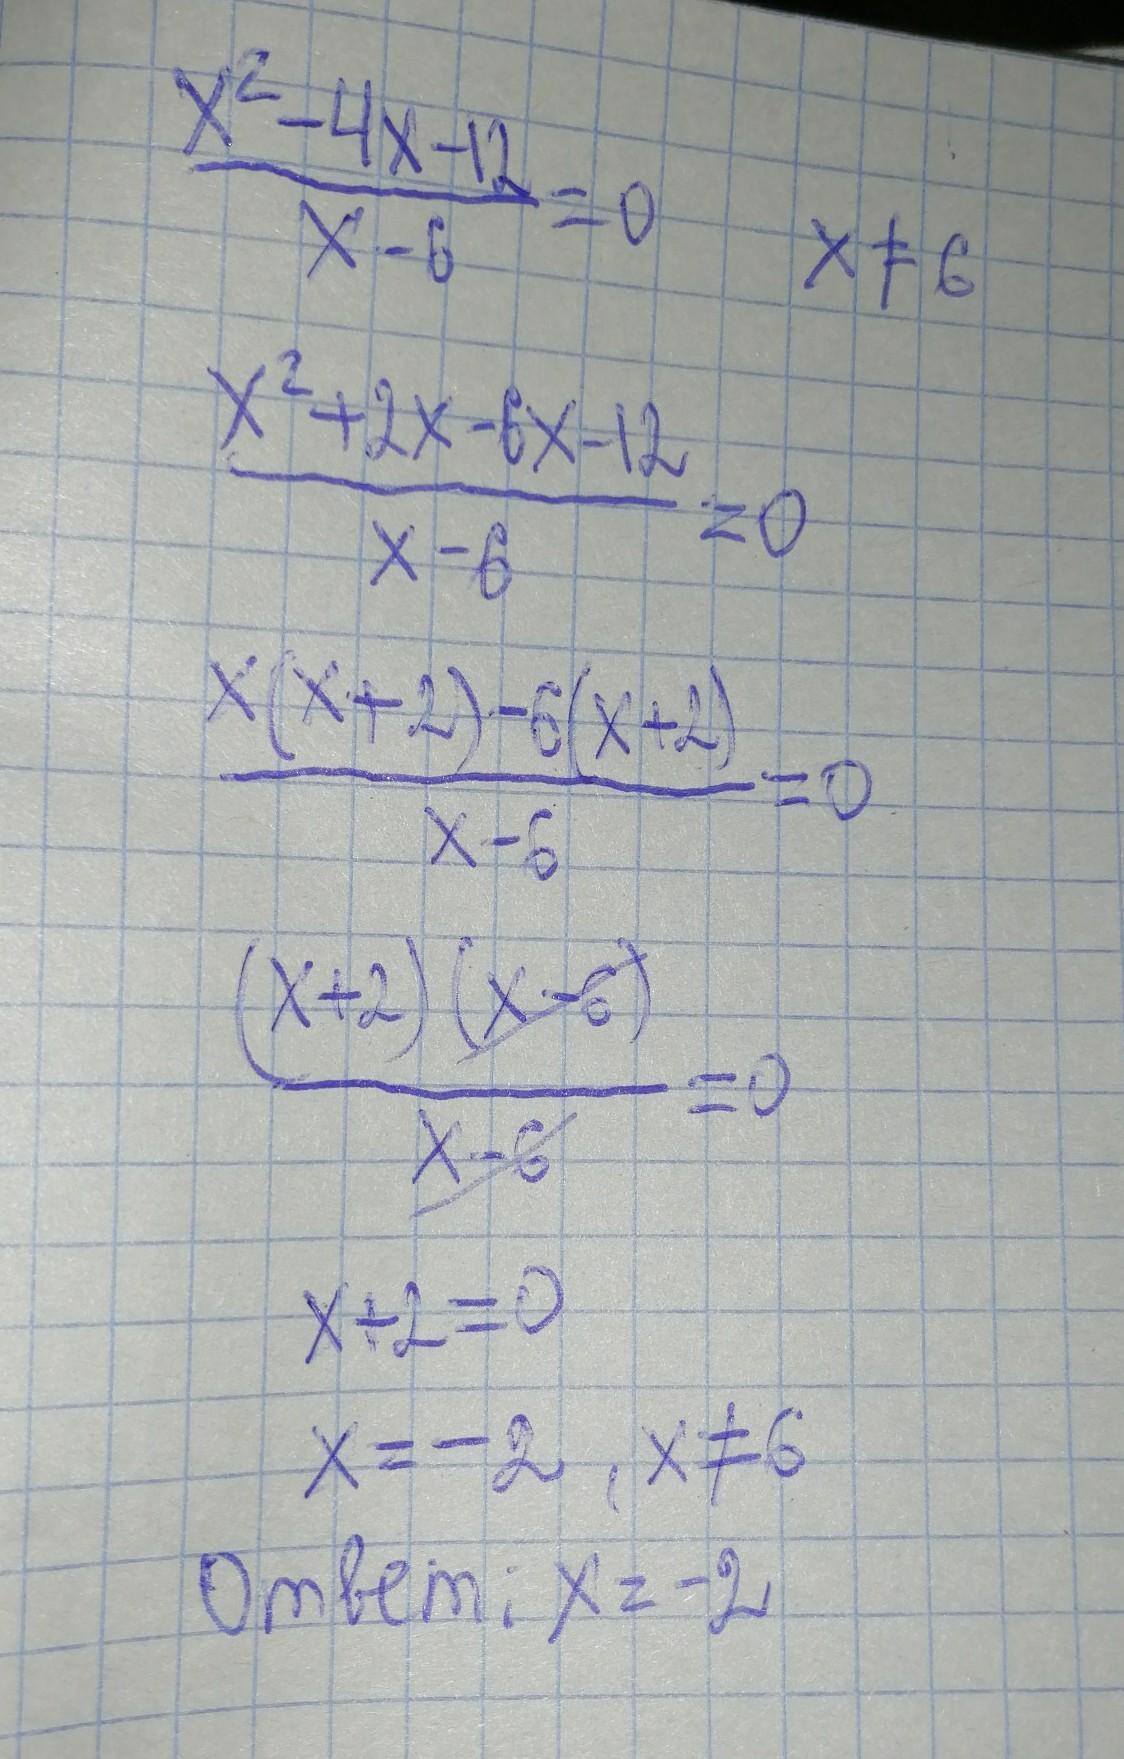 x² - 4x - 12 / x - 6 = 0    x ≠ 6
x² + 2x - 6x - 12 / x - 6 = 0
x(x + 2) - 6(x + 2) / x - 6 = 0
(x + 2)(x - 6) / x - 6 = 0
x + 2 = 0
x = -2, x ≠ 6
Ответ: x = -2